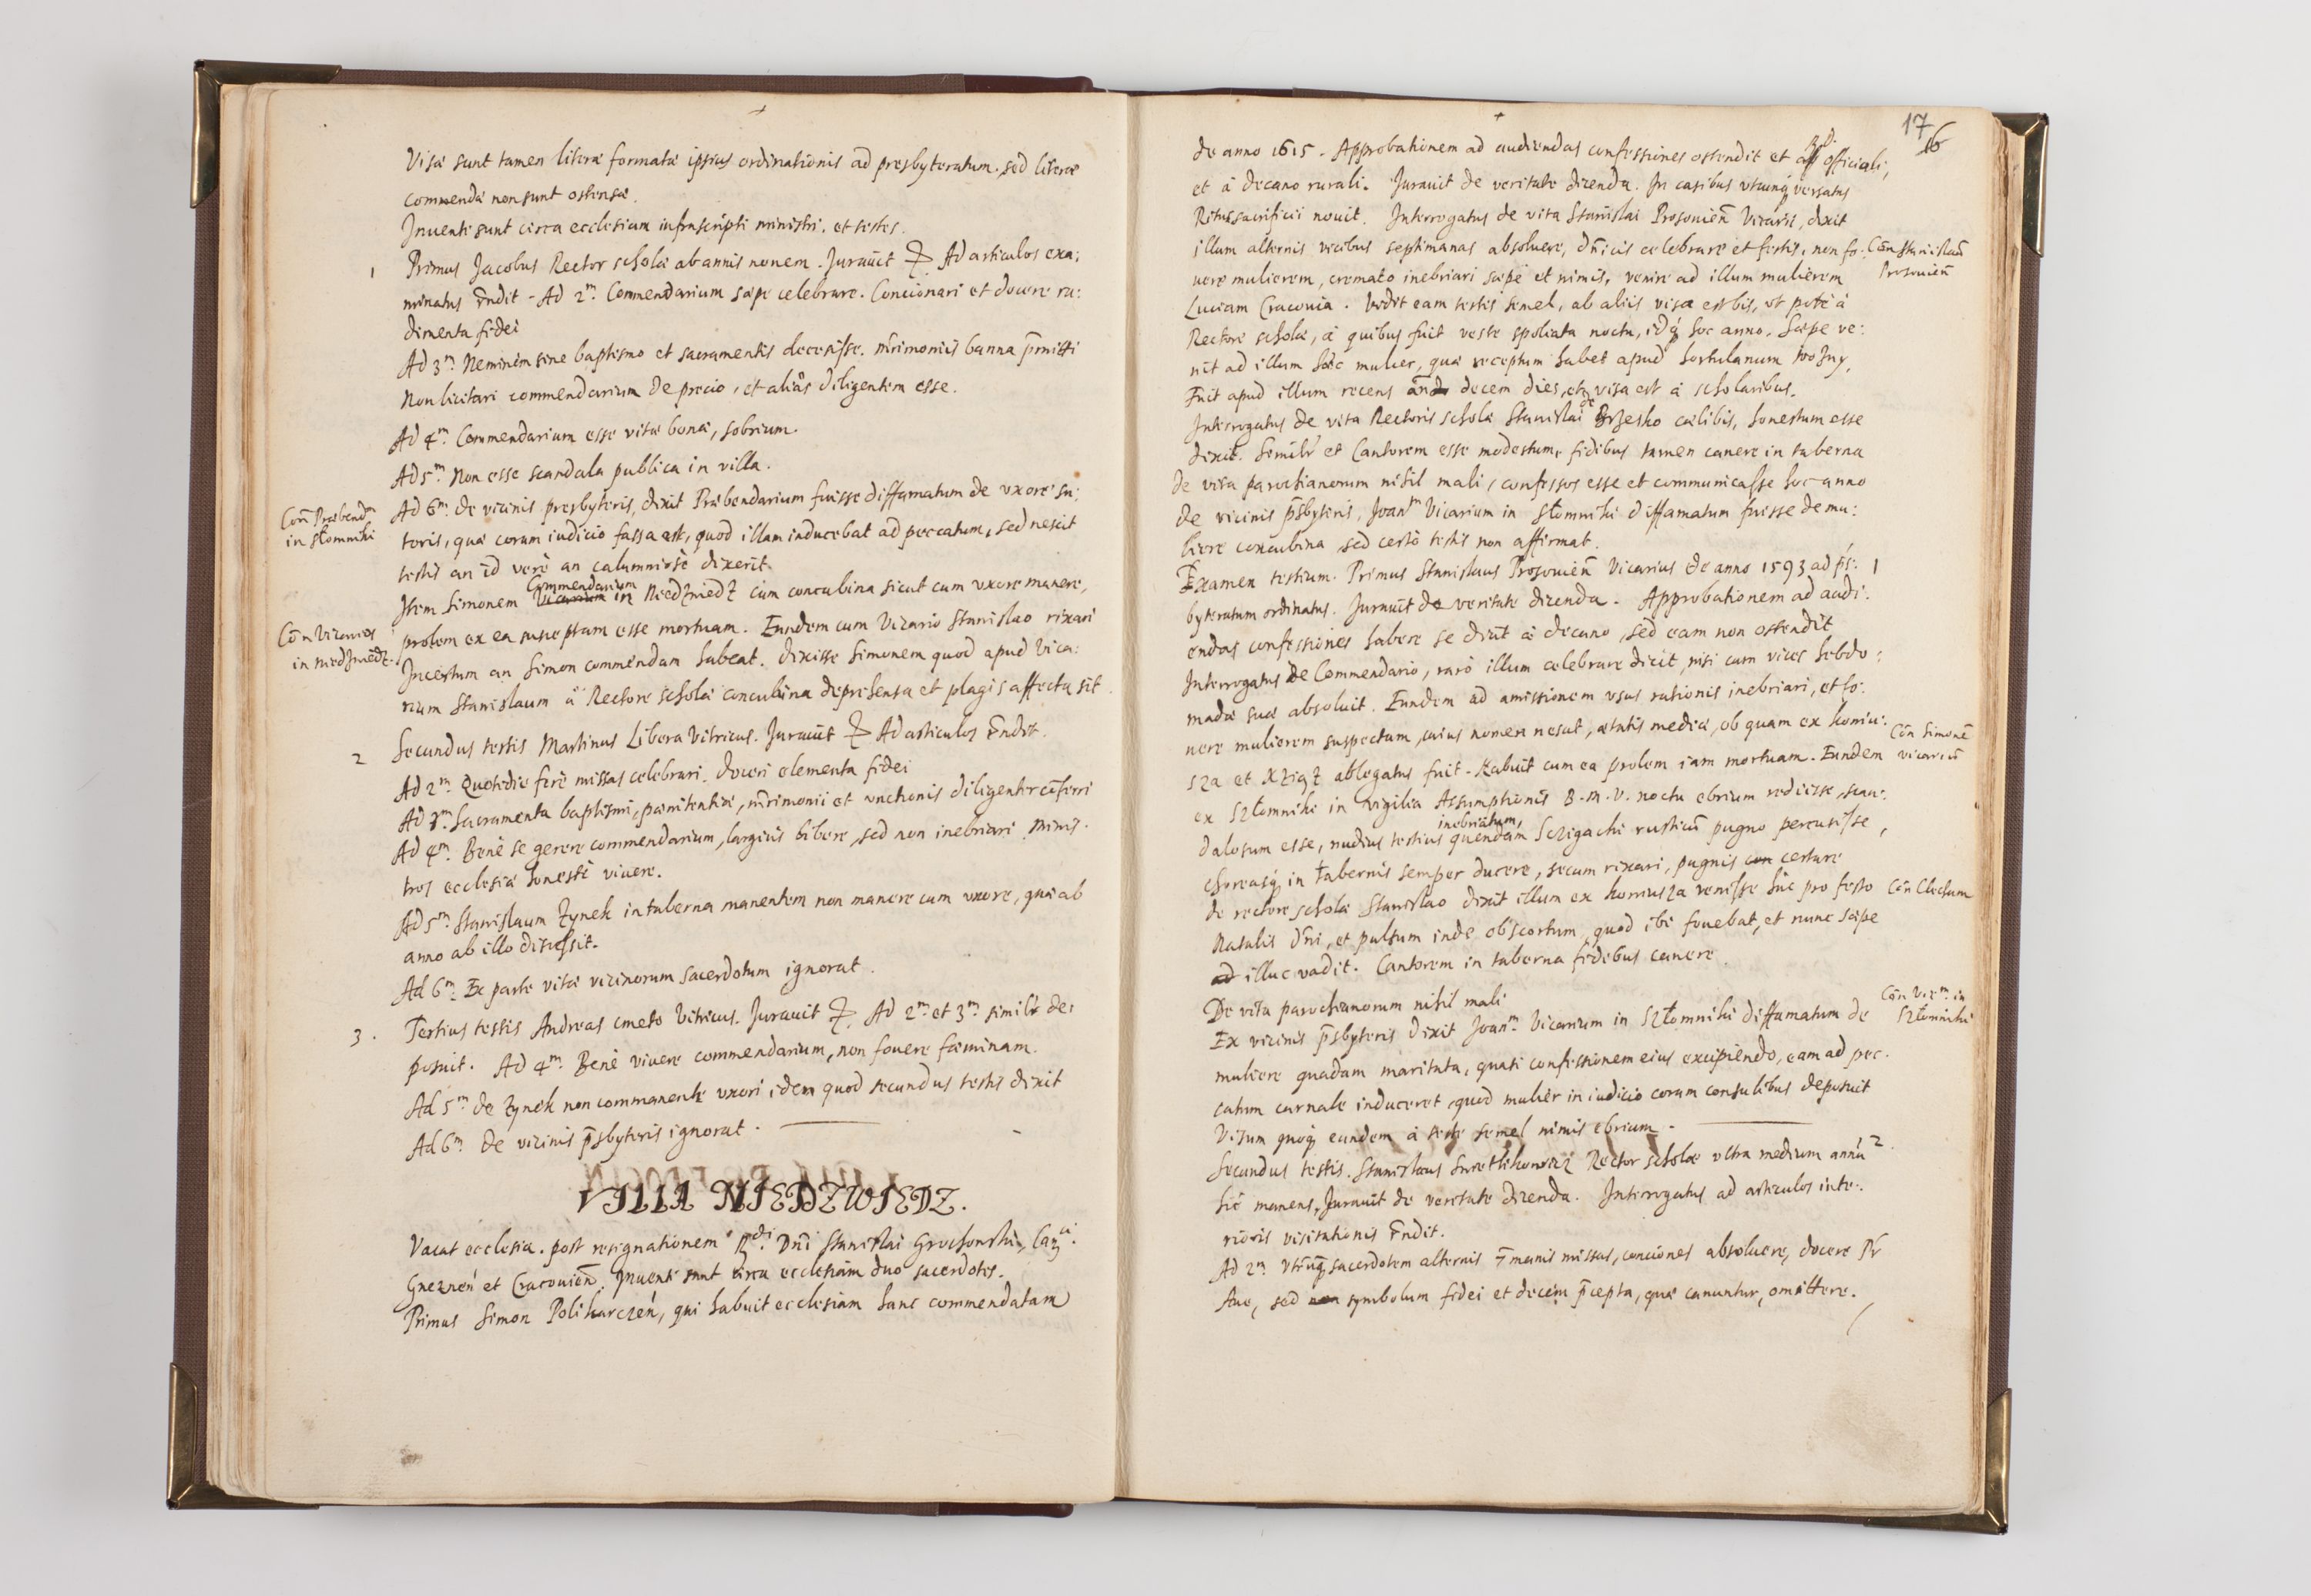 Visæ sunt tamen literæ formatæ ipsius ordinationis ad presbyteratum. sed literæ
commendæ non sunt ostensæ.
Inventi sunt circa ecclesiam infrascripti ministri. et testes.
1 Primus Jacobus Rector scholæ ab annis novem. Juravit Ad articulos exa:
minatus r̃ndit - Ad 2m. Commendarium sæpe celebrare. Concionari et docere ru:
dimenta fidei
Ad 3m. Neminem sine baptismo et sacramentis decessisse. mr̃imoniis banna p̃mitti
Non licitari commendarium de precio, et aliàs diligentem esse.
Ad 4m. Commendarium esse vitæ bonæ, sobrium.
Ad 5m. Non esse scandala publica in villa.
Con̄ Præbendm
in Słomniki
Ad 6m. de vicinis presbyteris, dixit Præbendarium fuisse diffamatum de uxore su:
toris, quæ coram iudicio fassa est, quod illam inducebat ad peccatum, sed nescit
testis an id verè an calumniosè dixerit.
Item Simonem Commendarium in Niedzwiedz cum concubina sicut cum uxore manere,
Con̄ Vicarios
in Niedzwiedz.
prolem ex ea susceptam esse mortuam. Eundem cum Vicario Stanislao rixari
Incertum an Simon commendam habeat. dixisse Simonem quod apud Vica:
rium Stanislaum à Rectore scholæ concubina deprehensa et plagis affecta sit.
2 Secundus testis Martinus Libera Vitricus. Juravit Ad articulos r̃ndit.
Ad 2m. Quotidie ferè missas celebrari. doceri elementa fidei
Ad 3m. Sacramenta baptismi, pænitentiæ, mr̃imonii et unctionis diligenter cõferri
Ad 4m. Benè se gerere commendarium, largius bibere, sed non inebriari. Minis:
tros ecclesiæ honestè vivere.
Ad 5m Stanislaum Zynek in taberna manentem non manere cum uxore, quæ ab
anno ab illo discessit.
Ad 6m. Ex parte vitæ vicinorum sacerdotum ignorat.
3. Tertius testis Andreas cmeto Vitricus. Juravit Ad 2m. et 3m. similr̃ de:
posuit. Ad 4m. Benè vivere commendarium, non fovere fæminam.
Ad 5m de Zynek non commanente uxori idem quod secundus testis dixit
Ad 6m. de vicinis p̃sbyteris ignorat.
VILLA NIEDZWIEDZ.
Vacat ecclesia. post resignationem Rdi. Dñi Stanislai Grochowski, Canci.
Gneznen̄ et Cracovien̄. Inventi sunt circa ecclesiam duo sacerdotes.
Primus Simon Polikarczen̄, qui habuit ecclesiam hanc commendatam
17
16
de anno 1615. Approbationem ad audiendas confessiones ostendit et a Rdi. officiali,
et à decano rurali. Juravit de veritate dicenda. In casibus utcunq̃ versatus
Ritus sacrificii novit. Interrogatus de vita Stanislai Prosovien̄ Vicarii, dixit
illum alternis vicibus septimanas absolvere, dñicis celebrare et festis, non fo:
Con̄ Stanislaū
Prosovien̄
vere mulierem, cremato inebriari sæpè et nimis, venire ad illum mulierem
Luciam Cracovia. Vidit eam testis semel, ab aliis visa est bis, ut potè à
Rectore scholæ, à quibus fuit veste spoliata noctu, idq̃ hoc anno. Sæpe ve:
nit ad illum hæc mulier, quæ receptum habet apud hortulanum
Fuit apud illum recens decem dies, et visa est à scholaribus.
Interrogatus de vita Rectoris scholæ Stanislai de Brzesko cælibis, honestum esse
dixit. Similr̃ et Cantorem esse modestum, fidibus tamen canere in taberna
de vita parochianorum nihil mali, confessos esse et communicasse hoc anno
de vicinis p̃sbyteris, Joanm Vicarium in Słomniki diffamatum fuisse de mu:
liere concubina sed certò testis non affirmat.
Examen testium. Primus Stanislaus Prosovien̄ Vicarius de anno 1593 ad p̃s: 1
byteratum ordinatus. Juravit de veritate dicenda. Approbationem ad audi:
endas confessiones habere se dixit à decano, sed eam non ostendit
Interrogatus de Commendario, rarò illum celebrare dicit, nisi cum vices hebdo:
madæ suæ absolvit. Eundem ad amissionem usus rationis inebriari, et fo:
vere mulierem suspectam, cuius nomen nescit, ætatis mediæ, ob quam ex Koniu:
Con̄ Simonē
vicariū
sza et Xziąż ablegatus fuit. Habuit cum ea prolem iam mortuam. Eundem
ex Szłomniki in vigilia Assumptionis B. M. V. noctu ebrium rediisse, scan:
dalosum esse, nudius tertius quendam inebriatum, Sczigacki rusticū pugno percusisse,
choreasq̃ in tabernis semper ducere, secum rixari, pugnis certare
de rectore scholæ Stanislao dixit illum ex Koniusza venisse hùc pro festo
Con̄ Clecham
Natalis Dñi, et pulsum inde ob scortum quod ibi fovebat, et nunc sæpe
illuc vadit. Cantorem in taberna fidibus canere.
De vita parochianorum nihil mali
Con̄ Vicm. in
Szłomniki
Ex vicinis p̃sbyteris dixit Joanm. Vicarium in Szłomniki diffamatum de
muliere quadam maritata, quasi confessionem eius excipiendo, eam ad pec:
catum carnale induceret, quod mulier in iudicio coram consulibus deposuit
Visum quoq̃ eundem à teste semel nimis ebrium.
Secundus testis. Stanislaus Swietlikowicz Rector scholæ ultra medium annū 2.
hìc manens, Juravit de veritate dicenda. Interrogatus ad articulos inte:
rioris visitationis r̃ndit.
Ad 2m. Utrūq̃ sacerdotem alternis 7manis missas, conciones absolvere, docere Pr̃
Ave, sed symbolum fidei et decem p̃cepta, quæ canuntur, omittere.